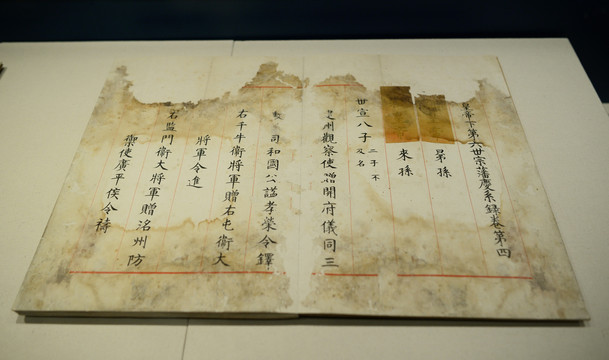 皇帝下第六世宗藩慶系錄卷第四
晜孫
來孫
世宣八子 二子不
及名
州觀察使贈開府儀同三
司和國公謚孝榮令鐸
右千牛衛將軍贈右屯衛大
將軍令進
右監門衛大將軍贈洺州防
禦使廣平侯令禱